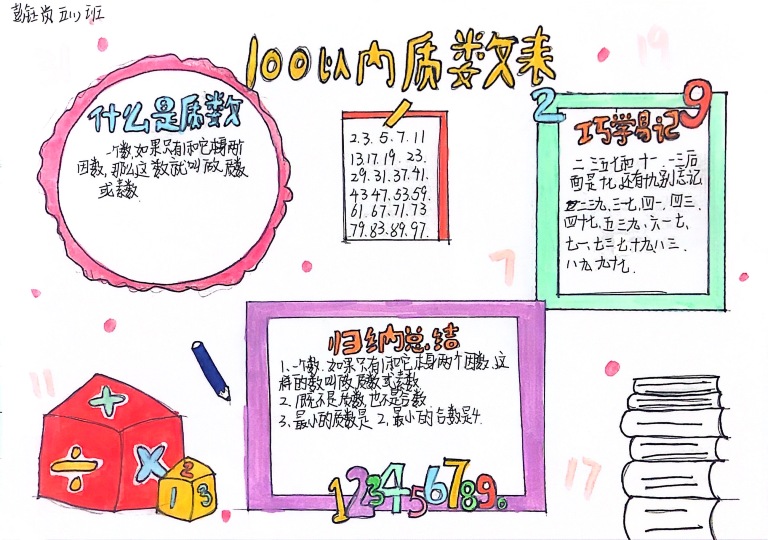 彭钰岚 五(1)班
100以内质数表
19
什么是质数
一个数,如果只有1和它本身两个
因数,那么这个数就叫做质数
或素数.
2.3.5.7.11
13.17.19.23.
29.31.37.41.
43.47.53.59.
61.67.71.73
79.83.89.97.
2 9
巧学易记
二、三五七和十一,一三后
面是十七,还有十九别忘记
二三九,三一七,四一,四三,
四十七,五三九,六一七,
七一,七三七十九,八三,
八九,九十七.
7
归纳总结
1、一个数,如果只有1和它本身两个因数,这
样的数叫做质数或素数
2、1既不是质数,也不是合数.
3、最小的质数是2,最小的合数是4.
1234567890
11
+
÷
×
2
1 3
17